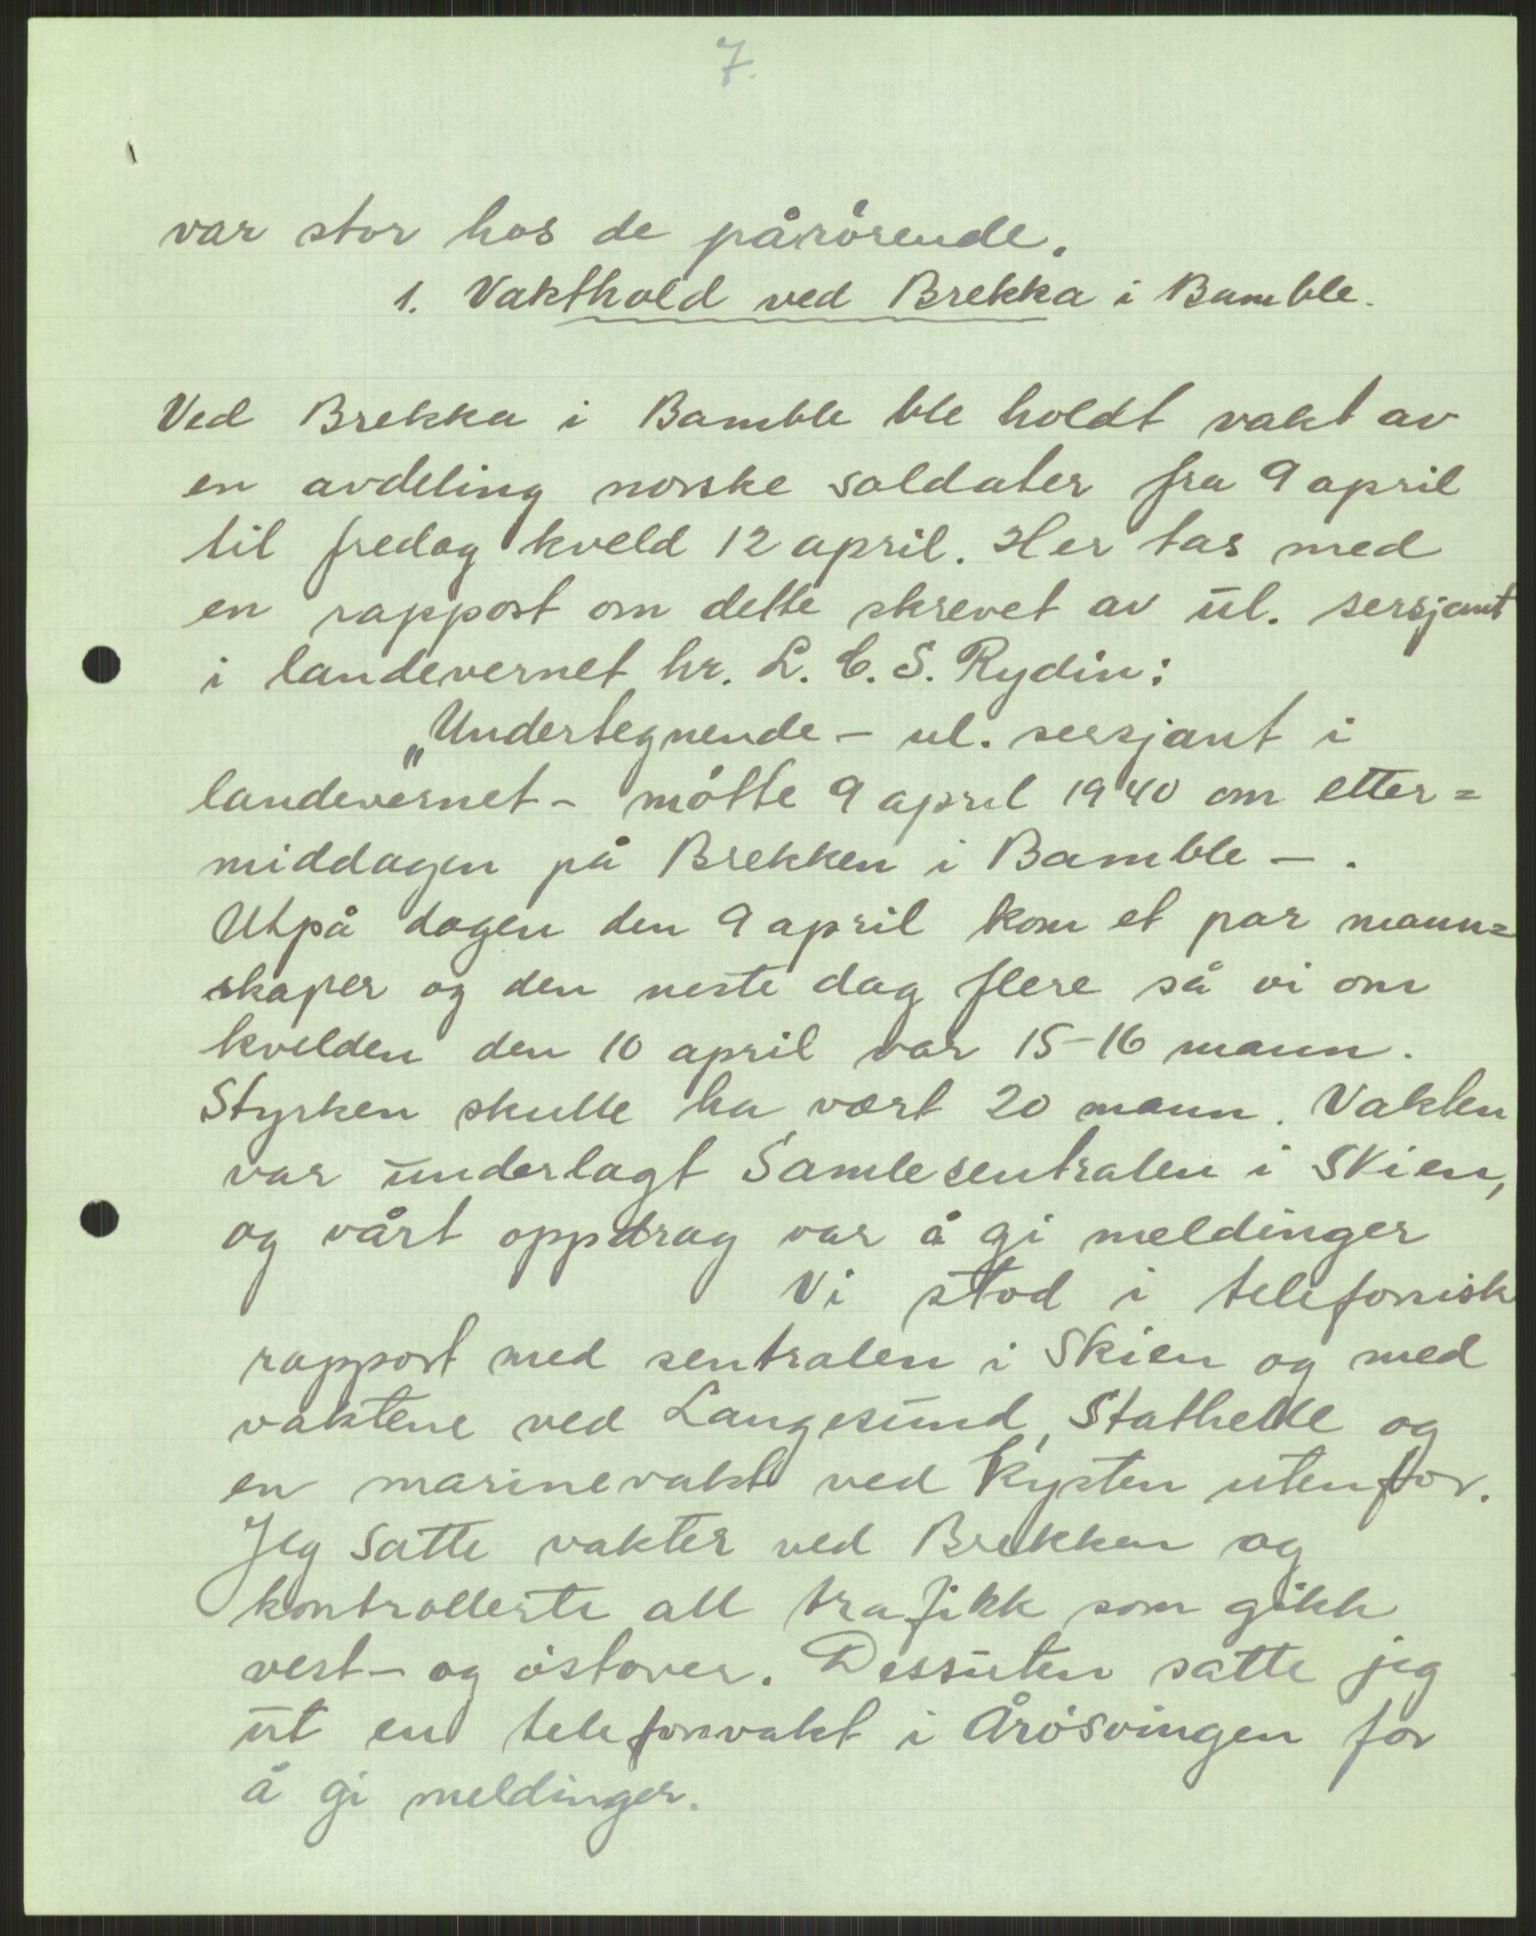 7.
var stor hos de pårörende.
1. Vakthold ved Brekka i Bamble.
Ved Brekka i Bamble ble holdt vakt av
en avdeling norske soldater fra 9 april
til fredag kveld 12 april. Her tas med
en rapport om dette skrevet av ul. sersjant
i landevernet hr. L. C. S. Rydin:
„Undertegnende - ul. sersjant i
landevernet - mötte 9 april 1940 om etter=
middagen på Brekken i Bamble - .
Utpå dagen den 9 april kom et par mann=
skaper og den neste dag flere så vi om
kvelden den 10 april var 15-16 mann.
Styrken skulle ha vært 20 mann. Vakten
var underlagt Samlesentralen i Skien,
og vårt oppdrag var å gi meldinger
Vi stod i telefonisk
rapport med sentralen i Skien og med
vaktene ved Langesund, Stathelle og
en marinevakt ved kysten utenfor.
Jeg satte vakter ved Brekken og
kontrollerte all trafikk som gikk
vest- og östover. Dessuten satte jeg
ut en telefonvakt i Årösvingen for
å gi meldinger.